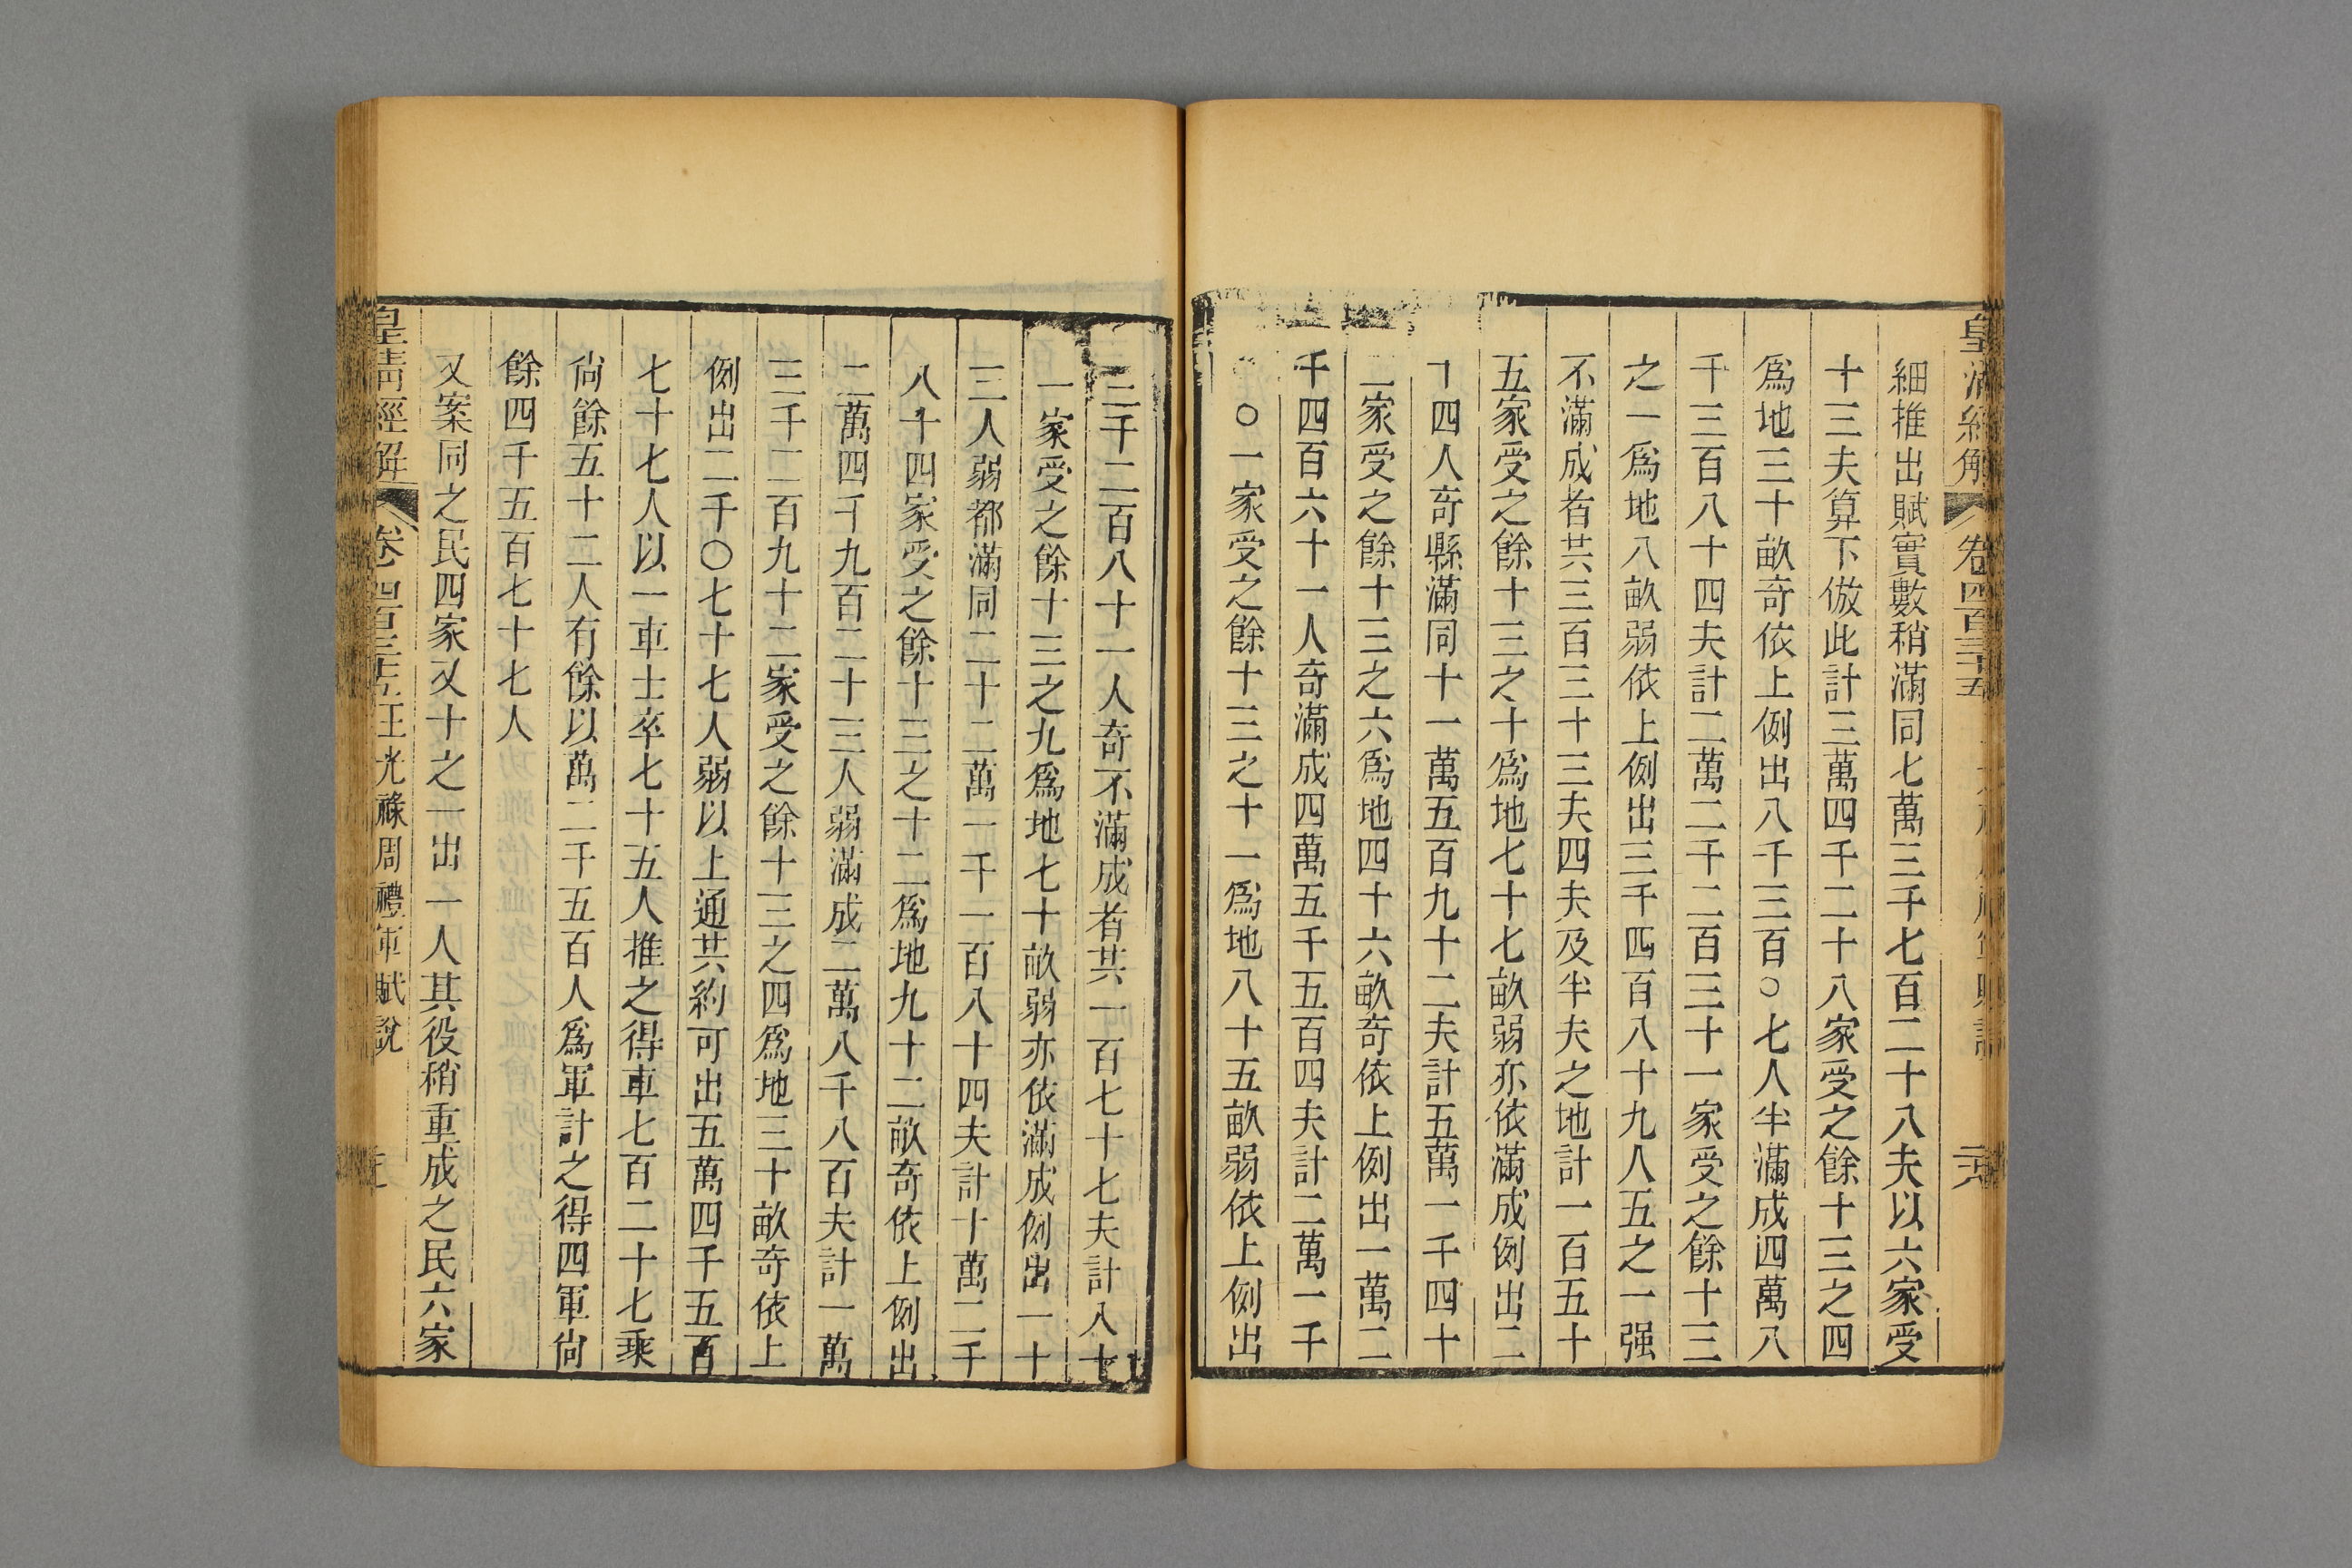 細推出賦實數稍滿同七萬三千七百二十八夫以六家受
十三夫算下倣此計三萬四千二十八家受之餘十三之四
爲地三十畝奇依上例出八千三百○七人半滿成四萬八
千三百八十四夫計二萬二千二百三十一家受之餘十三
之一爲地八畝弱依上例出三千四百八十九人五之一强
不滿成者共三百三十三夫四夫及半夫之地計一百五十
五家受之餘十三之十爲地七十七畝弱亦依滿成例出二
十四人奇縣滿同十一萬五百九十二夫計五萬一千四十
二家受之餘十三之六爲地四十六畝奇依上例出一萬二
千四百六十一人奇滿成四萬五千五百四夫計二萬一千
○一家受之餘十三之十一爲地八十五畝弱依上例出
三千二百八十一人奇不滿成者共一百七十七夫計八十
一家受之餘十三之九爲地七十畝弱亦依滿成例出一十
三人弱都滿同二十二萬一千一百八十四夫計十萬二千
八十四家受之餘十三之十二爲地九十二畝奇依上例出
二萬四千九百二十三人弱滿成二萬八千八百夫計一萬
三千二百九十二家受之餘十三之四爲地三十畝奇依上
例出二千○七十七人弱以上通共約可出五萬四千五百
七十七人以一車士卒七十五人推之得車七百二十七乘
尙餘五十二人有餘以萬二千五百人爲軍計之得四軍尙
餘四千五百七十七人
又案同之民四家又十之一出一人其役稍重成之民六家
皇淸經解 卷四百三十五 王光祿周禮軍賦說